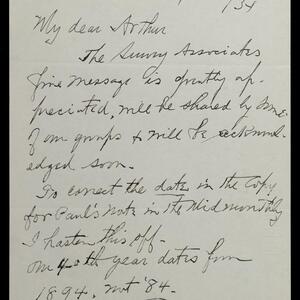 /34
My dear Arthur
The Survey Associates
fine message is greatly ap-
preciated, will be shared by
of our groups & will be acknowl-
edged soon.
To correct the date in the copy
for Paul's note in the Midmonthly
I hasten this off.
Our 40th year dates from
1894, not '84.